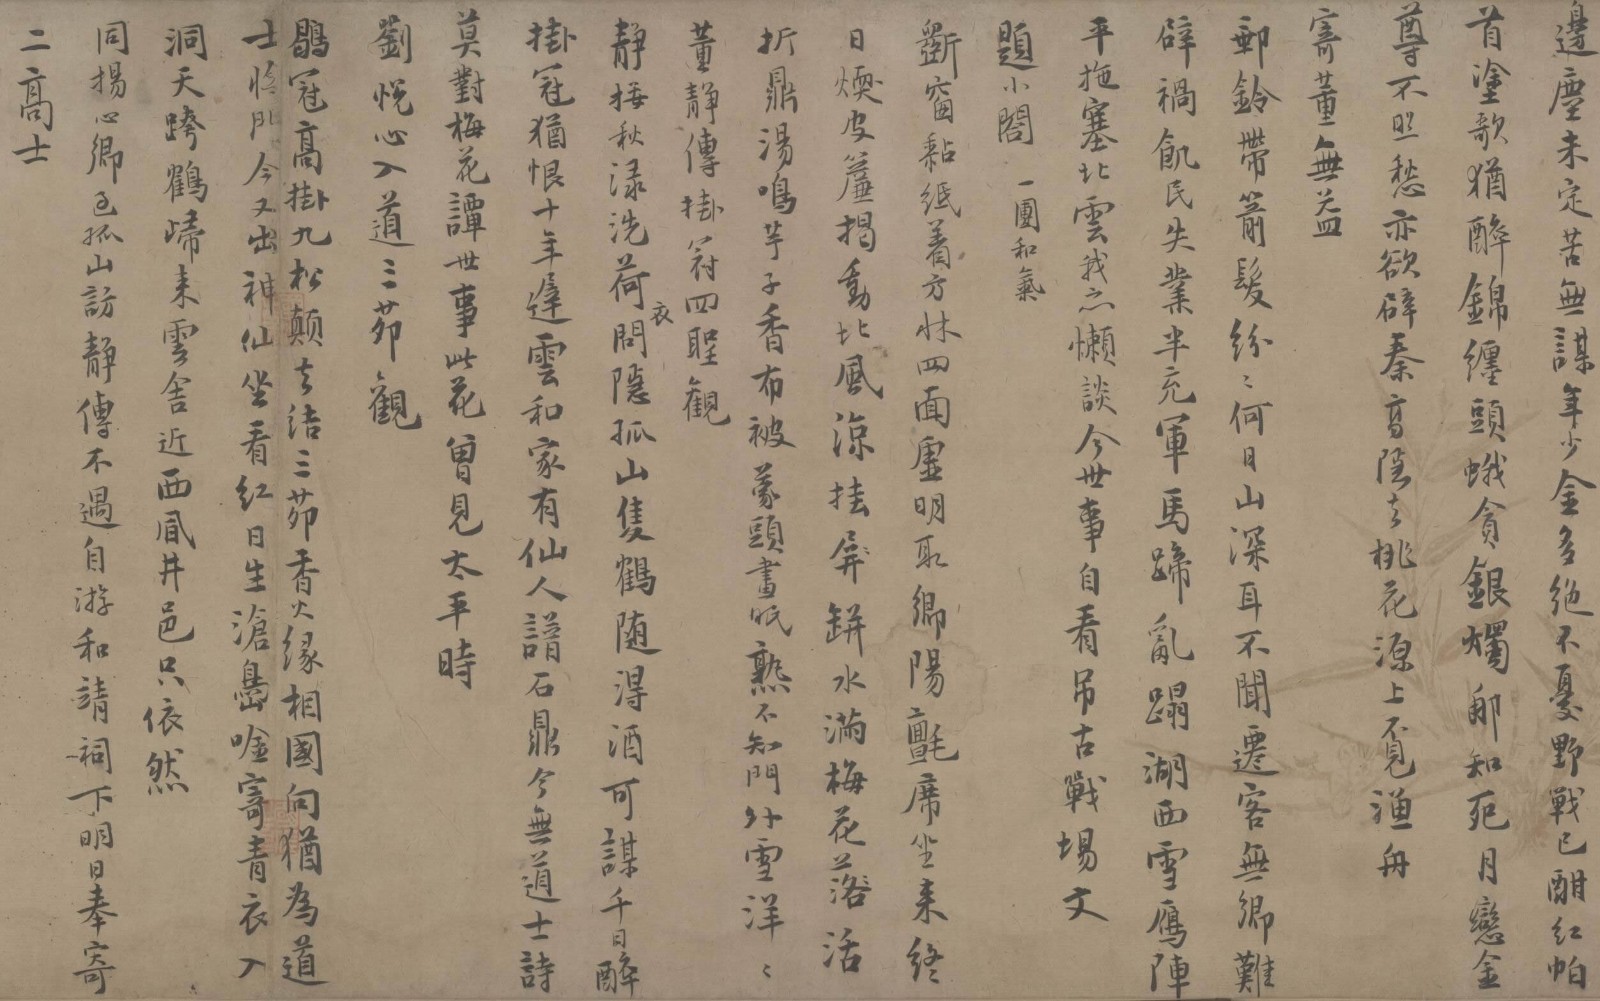 邊塵未定苦無謀年少金多絶不憂野戰已酣紅帕
首塗歌猶醉錦纏頭蛾貪銀燭那知死月戀金
尊不照愁亦欲辟秦高隠去桃花源上覓漁舟
寄董無益
郵鈴帶箭髮紛〻何日山深耳不聞遷客無鄉難
辟禍飢民失業半充軍馬蹄亂蹋湖西雪鴈陣
平拖塞北雲我亦懶談今世事自看吊古戰場文
題小閣一團和氣
斵窗黏紙着方牀四面虚明取鄉陽氈席坐来終
日煗皮簾揭動北風涼挂屏缾水滿梅花落活
折鼎湯鳴芋子香布被蒙頭晝眠熟不知門外雪洋〻
董靜傳掛冠四聖觀
靜接秋渌洗荷衣問隠孤山隻鶴随得酒可謀千日醉
掛冠猶恨十年遲雲和家有仙人譜石鼎今無道士詩
莫對梅花譚世事此花曾見太平時
劉悅心入道三茆觀
鶡冠高掛九松顛去結三茆香火緣相國向猶為道
士臨門今又出神仙坐看紅日生滄島唫寄青衣入
洞天跨鶴歸来雲舍近西凮井邑只依然
同揚心卿至孤山訪靜傳不遇自游和靖祠下明日奉寄
二高士